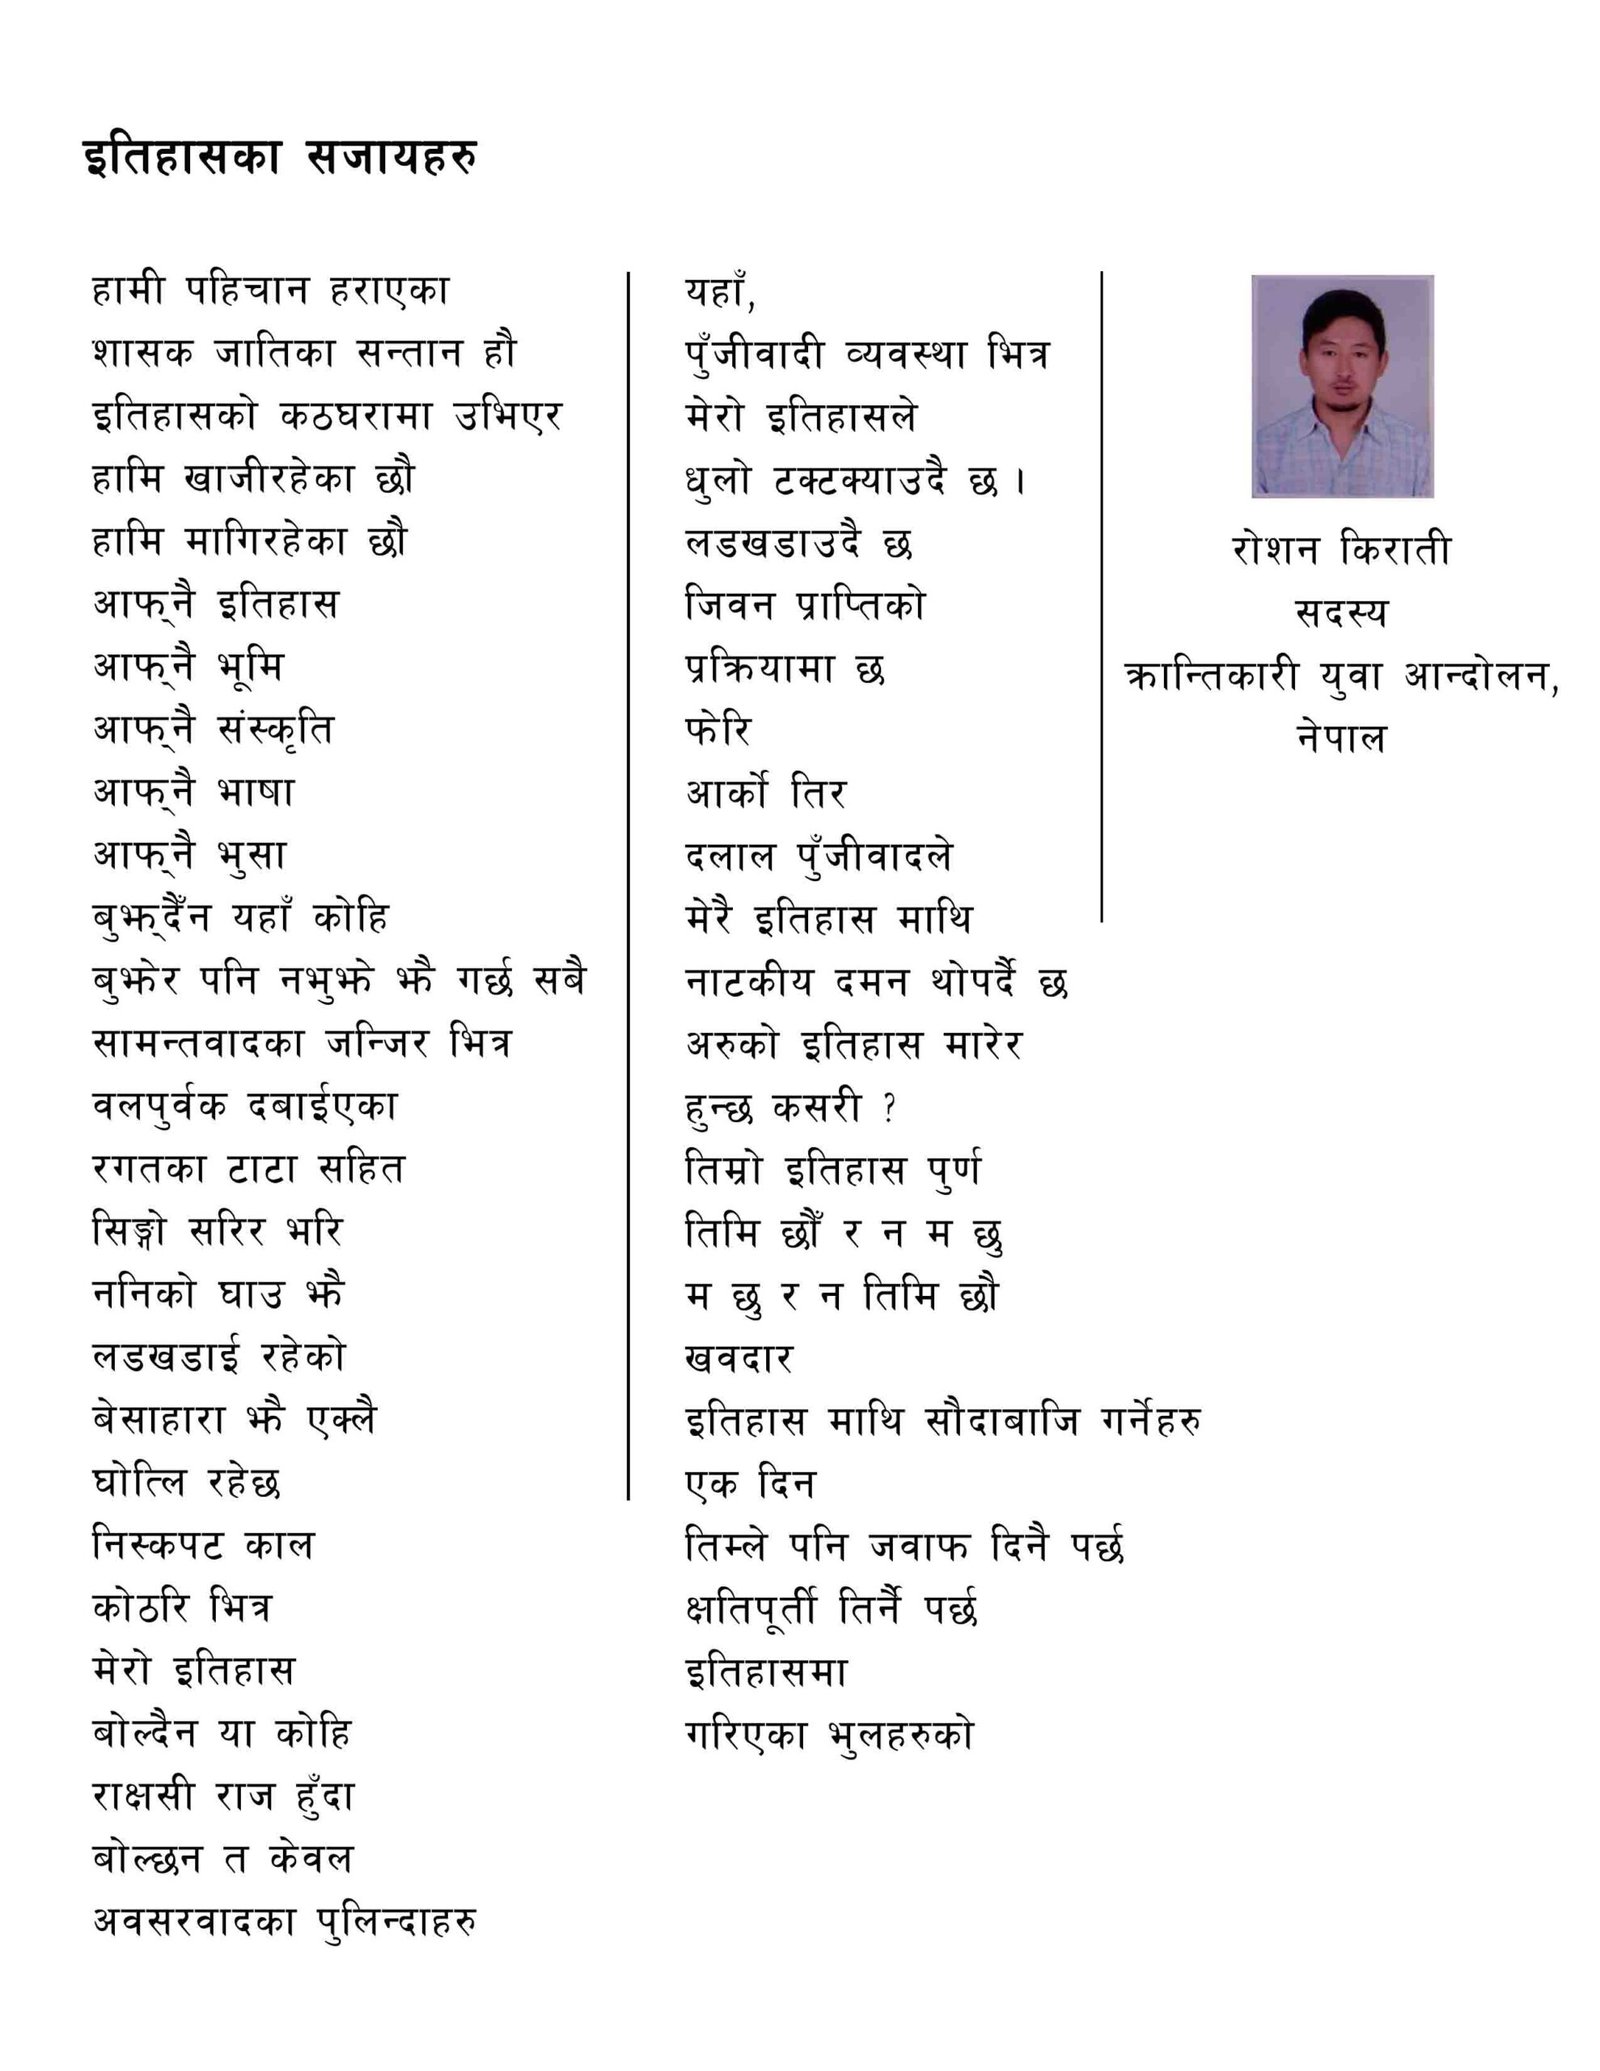 इतिहासका सजायहरु
हामी पहिचान हराएका
शासक जातिका सन्तान हौ
इतिहासको कठघरामा उभिएर
हामि खाजीरहेका छौ
हामि मागिरहेका छौ
आफ्‌नै इतिहास
आफ्‌नै भूमि
आफ्‌नै संस्कृति
आफ्‌नै भाषा
आफ्‌नै भुसा
बुझ्‌दैँन यहाँ कोहि
बुझेर पनि नभुझे झै गर्छ सबै
सामन्तवादका जन्जिर भित्र
वलपुर्वक दबाईएका
रगतका टाटा सहित
सिङ्गो सरिर भरि
ननिको घाउ झै
लडखडाई रहेको
बेसाहारा झै एक्लै
घोत्लि रहेछ
निस्कपट काल
कोठरि भित्र
मेरो इतिहास
बोल्दैन या कोहि
राक्षसी राज हुँदा
बोल्छन त केवल
अवसरवादका पुलिन्दाहरु
यहाँ,
पुँजीवादी व्यवस्था भित्र
मेरो इतिहासले
धुलो टक्टक्याउदै छ ।
लडखडाउदै छ
जिवन प्राप्तिको
प्रक्रियामा छ
फेरि
आर्को तिर
दलाल पुँजीवादले
मेरै इतिहास माथि
नाटकीय दमन थोपर्दै छ
अरुको इतिहास मारेर
हुन्छ कसरी ?
तिम्रो इतिहास पुर्ण
तिमि छौँ र न म छु
म छु र न तिमि छौ
खवदार
इतिहास माथि सौदाबाजि गर्नेहरु
एक दिन
तिम्ले पनि जवाफ दिनै पर्छ
क्षतिपूर्ती तिर्नै पर्छ
इतिहासमा
गरिएका भुलहरुको
रोशन किराती
सदस्य
क्रान्तिकारी युवा आन्दोलन,
नेपाल